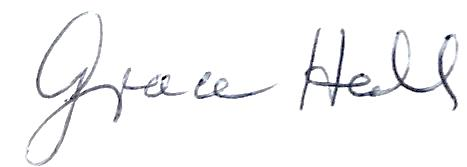 Grace Hall